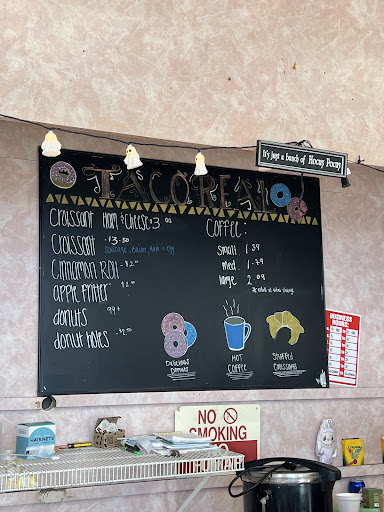 It's just a bunch of Hocus Pocus
TACOREAL
Croissant Ham & Cheese $3.00
Croissant - $3.50
Sausage, Bacon, Ham & Egg
Cinnamon Roll - $2.00
apple fritter $2.00
donuts 99¢
donut holes - $2.00
Coffee:
Small 1.59
med. 1.79
large 2.09
Delicious
Donuts
Hot
Coffee
Stuffed
Croissants
BUSINESS
HOURS
NO
SMOKING
HAIRNETS
Crayola